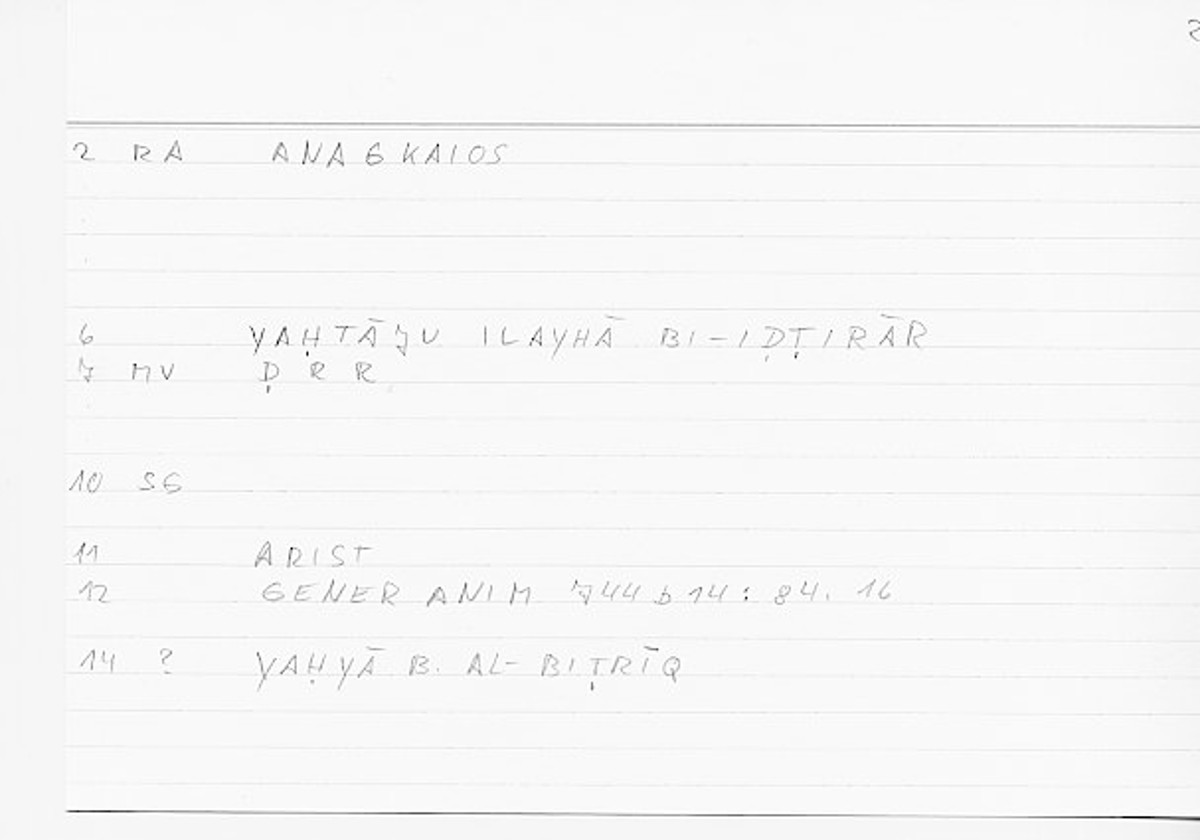 2
2 RA ANAGKAIOS
6 YAḤTĀJU ILAYHĀ BI-IḌṬIRĀR
7 MV Ḍ R R
10 SG
11 ARIST
12 GENER ANIM 744 b 14 : 84. 16
14 ? YAḤYĀ B. AL-BIṬRĪQ